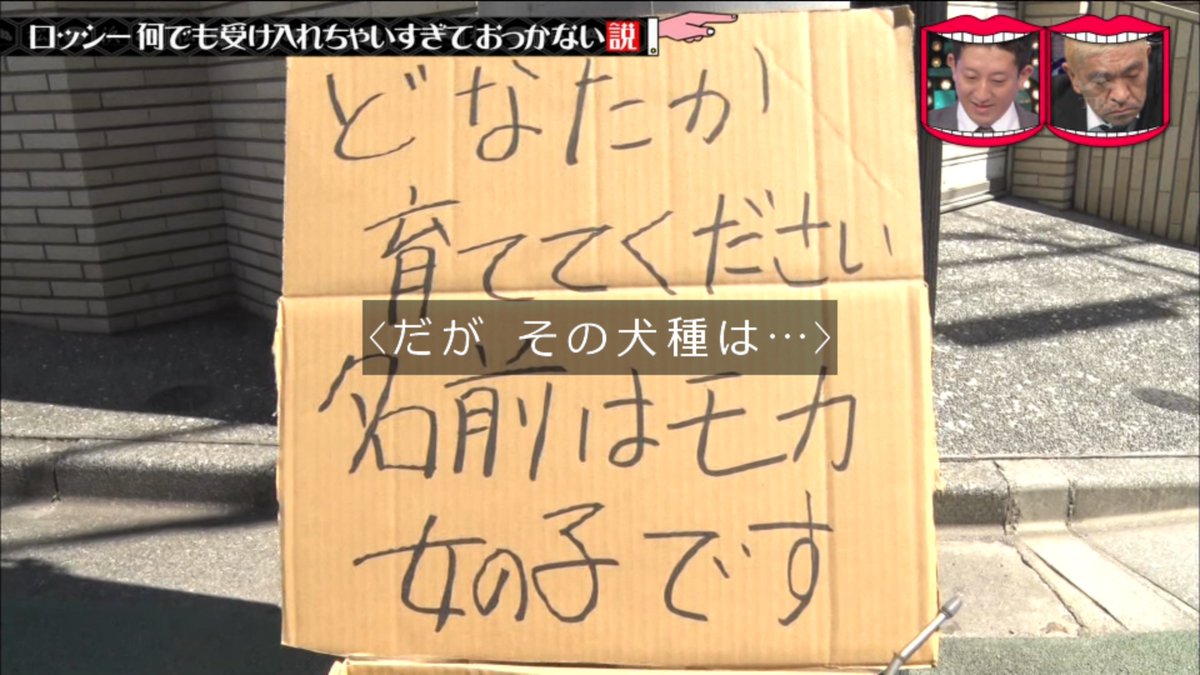 ロッシー何でも受け入れちゃいすぎておっかない説!
どなたか
育ててください
〈だが その犬種は…〉
名前はモカ
女の子です